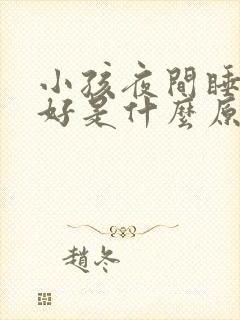 小孩夜間睡
好是什麼原
趙冬